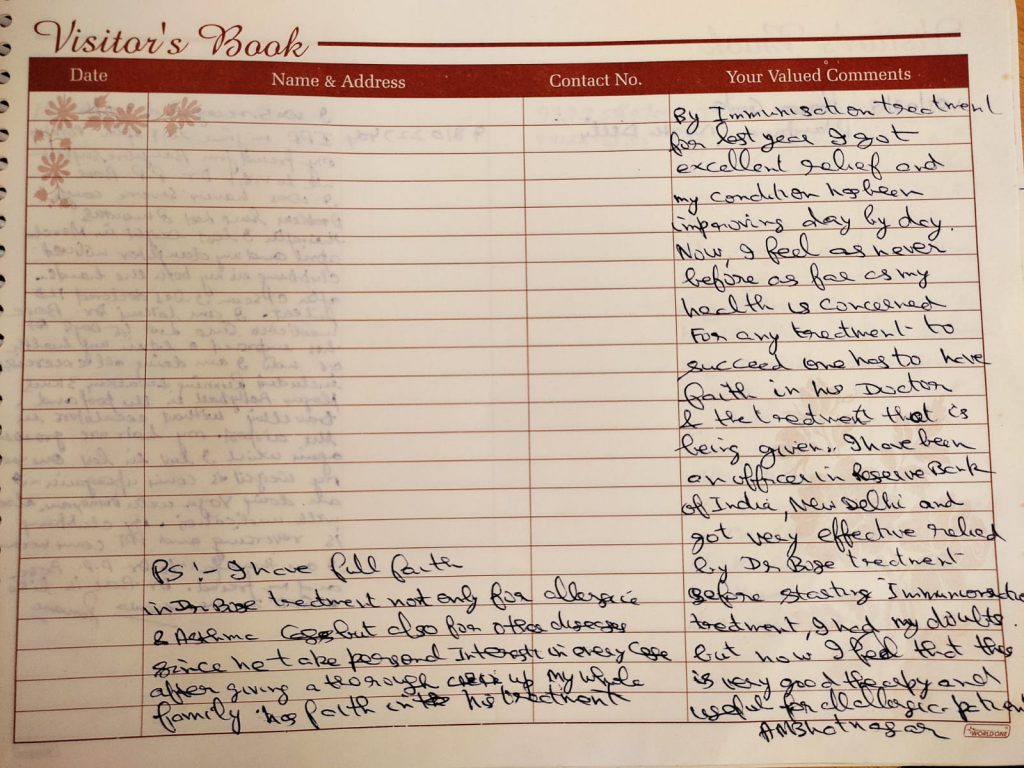 Visitor's Book
Date Name & Address Contact No. Your Valued Comments
By Immunisction treatment
for last year I got
excellent relief and
my condition has been
improving day by day.
Now, I feel as never
before as far as my
health is concerned
For any treatment to
succeed one has to have
faith in his Doctor
& the treatment that is
being given.. I have been
an officer in Reserve Bank
of India, New Delhi and
got very effective relied
by Dr Bose treatment
Before starting Immunorsctie
treatment, I had my doubts.
but now I feel that this
is very good therapy and
useful for all alergic patients
AMBhatnagar
PS :- I have full faith
in Dr Bose treatment not only for allergic
& Asthma Cases but also for other diseases
since he take personal Interest in every Case
after giving a thorough check up My whole
family has faith in his treatment
WORLDONE